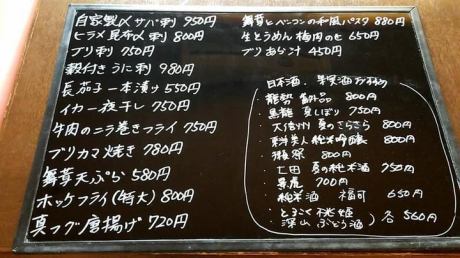 自家製〆サバ刺 950円
ヒラメ昆布〆刺 800円
ブリ刺 750円
殻付きうに刺 980円
長茄子一本漬け 550円
イカ一夜干し 750円
牛肉のニラ巻きフライ 750円
ブリカマ焼き 780円
舞茸天ぷら 580円
ホッケフライ(特大) 800円
真フグ唐揚げ 720円
舞茸とベーコンの和風パスタ 880円
生とうめん 梅肉のせ 650円
ブリあら汁 450円
日本酒、果実酒
龍勢 800円
黒龍 夏しぼり 750円
大信州 夏のさらさら 800円
純米吟醸 800円
獺祭 800円
七田 夏の純米酒 750円
700円
純米酒 福司 650円
とろこく桃姫
深山ぶどう酒 ) 各 560円